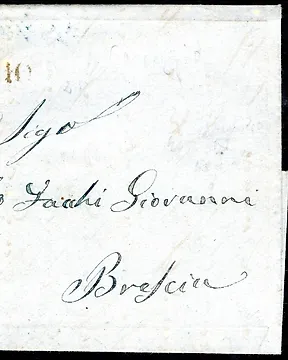 10
Sigr
Zachi Giovanni
Brescia